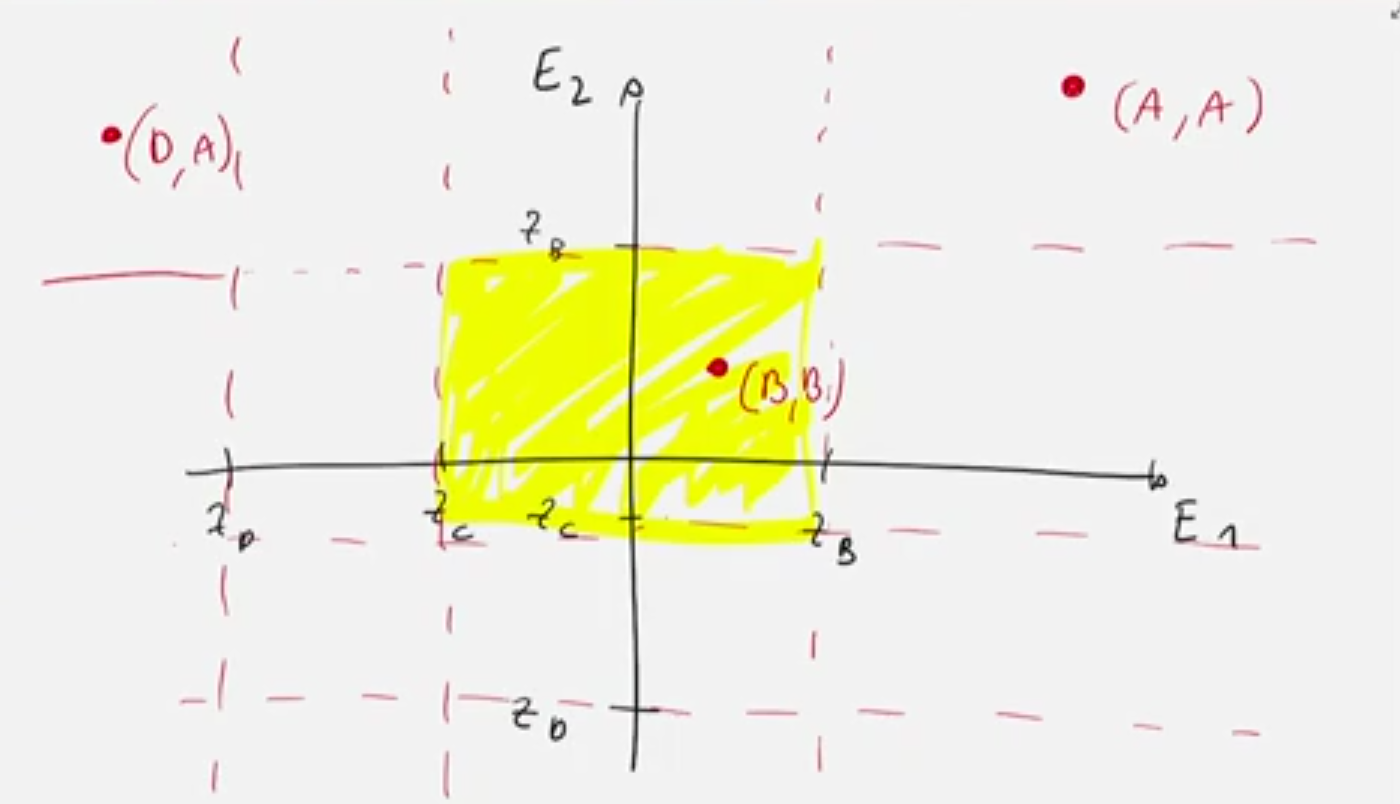 E₂
(A, A)
(D, A)
z_B
(B, B)
z_D
z_C
z_C
z_B
E₁
z_D